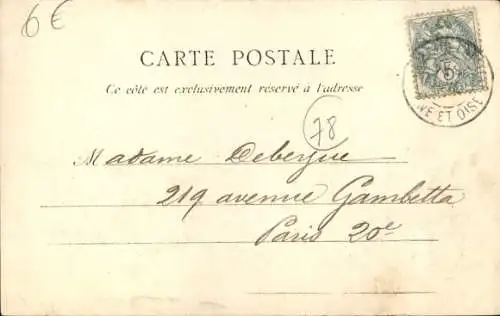 6€
CARTE POSTALE
Ce côté est exclusivement réservé à l'adresse
78
Madame Debergue
219 avenue Gambetta
Paris 20e
5
ET OISE